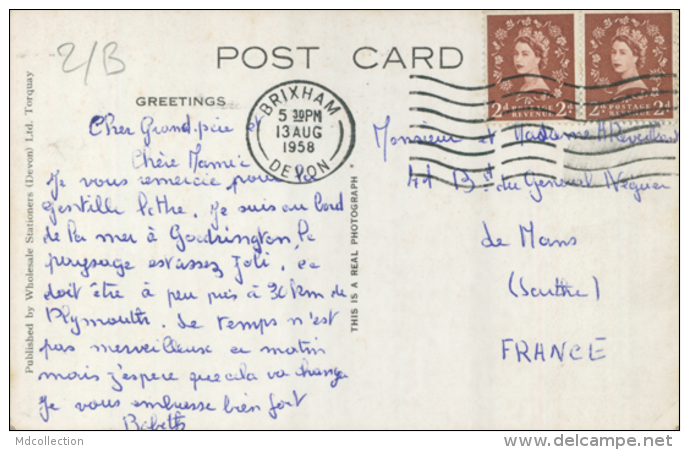 2/B
POST CARD
GREETINGS
BRIXHAM
5 30PM
13 AUG
1958
DEVON
2d POSTAGE REVENUE 2d
2d POSTAGE REVENUE 2d
Cher Grand-père
Chère Mamie
Je vous remercie pour la
gentille lettre. Je suis au bord
de la mer à Goodrington, le
paysage est assez joli, ce
doit être à peu près à 30 km de
Plymouth. Le temps n'est
pas merveilleux ce matin
mais j'espere que cela va changer
Je vous embrasse bien fort
Babeth
Monsieur et Madame
41 Bd du General Négrier
Le Mans
(Sarthe)
FRANCE
Published by Wholesale Stationers (Devon) Ltd. Torquay
THIS IS A REAL PHOTOGRAPH
Mdcollection
delcampe.net